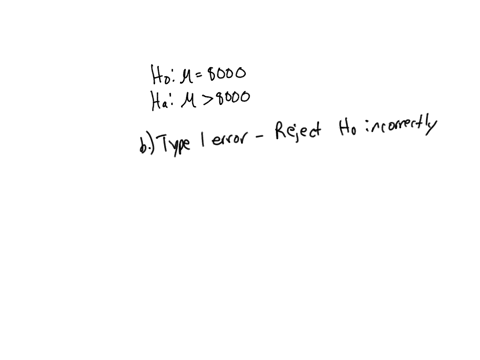 H₀: μ = 8000
Hₐ: μ > 8000
b.) Type 1 error - Reject H₀ incorrectly